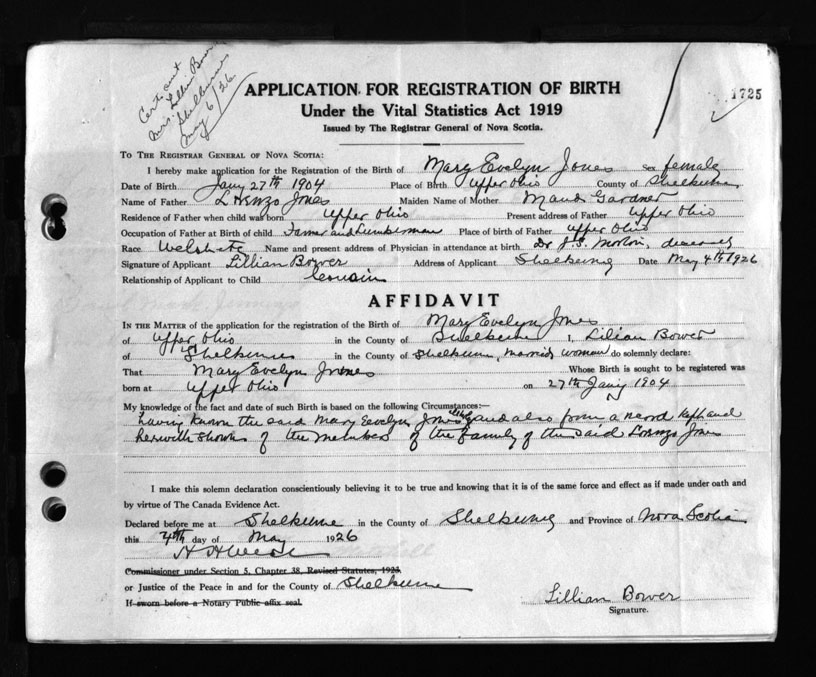 Cert sent
Mrs. Lillian Bower
Shelburne
May 6/26
1725
APPLICATION FOR REGISTRATION OF BIRTH
Under the Vital Statistics Act 1919
Issued by The Registrar General of Nova Scotia.
To The Registrar General of Nova Scotia:
I hereby make application for the Registration of the Birth of Mary Evelyn Jones Sex female
Date of Birth Jany 27th 1904 Place of Birth Upper Ohio County of Shelburne
Name of Father Lorenzo Jones Maiden Name of Mother Maud Gardner
Residence of Father when child was born Upper Ohio Present address of Father Upper Ohio
Occupation of Father at Birth of child Farmer and Lumberman Place of birth of Father Upper Ohio
Race Name and present address of Physician in attendance at birth Dr J.S. Morton, deceased
Signature of Applicant Lillian Bower Address of Applicant Shelburne Date May 4th 1926
Relationship of Applicant to Child Cousin
AFFIDAVIT
In the Matter of the application for the registration of the Birth of Mary Evelyn Jones
of Upper Ohio in the County of Shelburne I, Lilian Bower
of Shelburne in the County of Shelburne, married woman do solemnly declare:
That Mary Evelyn Jones Whose Birth is sought to be registered was
born at Upper Ohio on 27th Jany 1904
My knowledge of the fact and date of such Birth is based on the following Circumstances:—
having known the said Mary Evelyn Jones and also from a record kept and
herewith shown of the members of the family of the said Lorenzo Jones
I make this solemn declaration conscientiously believing it to be true and knowing that it is of the same force and effect as if made under oath and
by virtue of The Canada Evidence Act.
Declared before me at Shelburne in the County of Shelburne and Province of Nova Scotia
this 4th day of May 1926
Commissioner under Section 5, Chapter 38, Revised Statutes, 1923.
or Justice of the Peace in and for the County of Shelburne
If sworn before a Notary Public affix seal.
Lillian Bower
Signature.